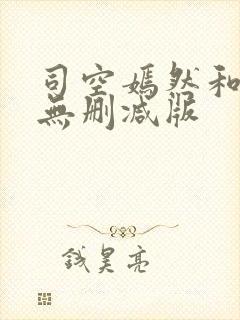 司空嫣然和
無刪減版
錢昊亮